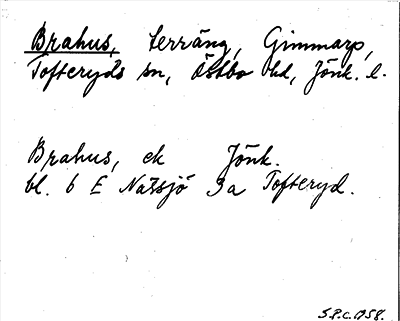 Brahus, terräng, Gimmarp,
Tofteryds sn, Östbo hd, Jönk. l.
Brahus, ek Jönk.
bl. 6 E Nässjö 3a Tofteryd.
S.P.C. 1958.